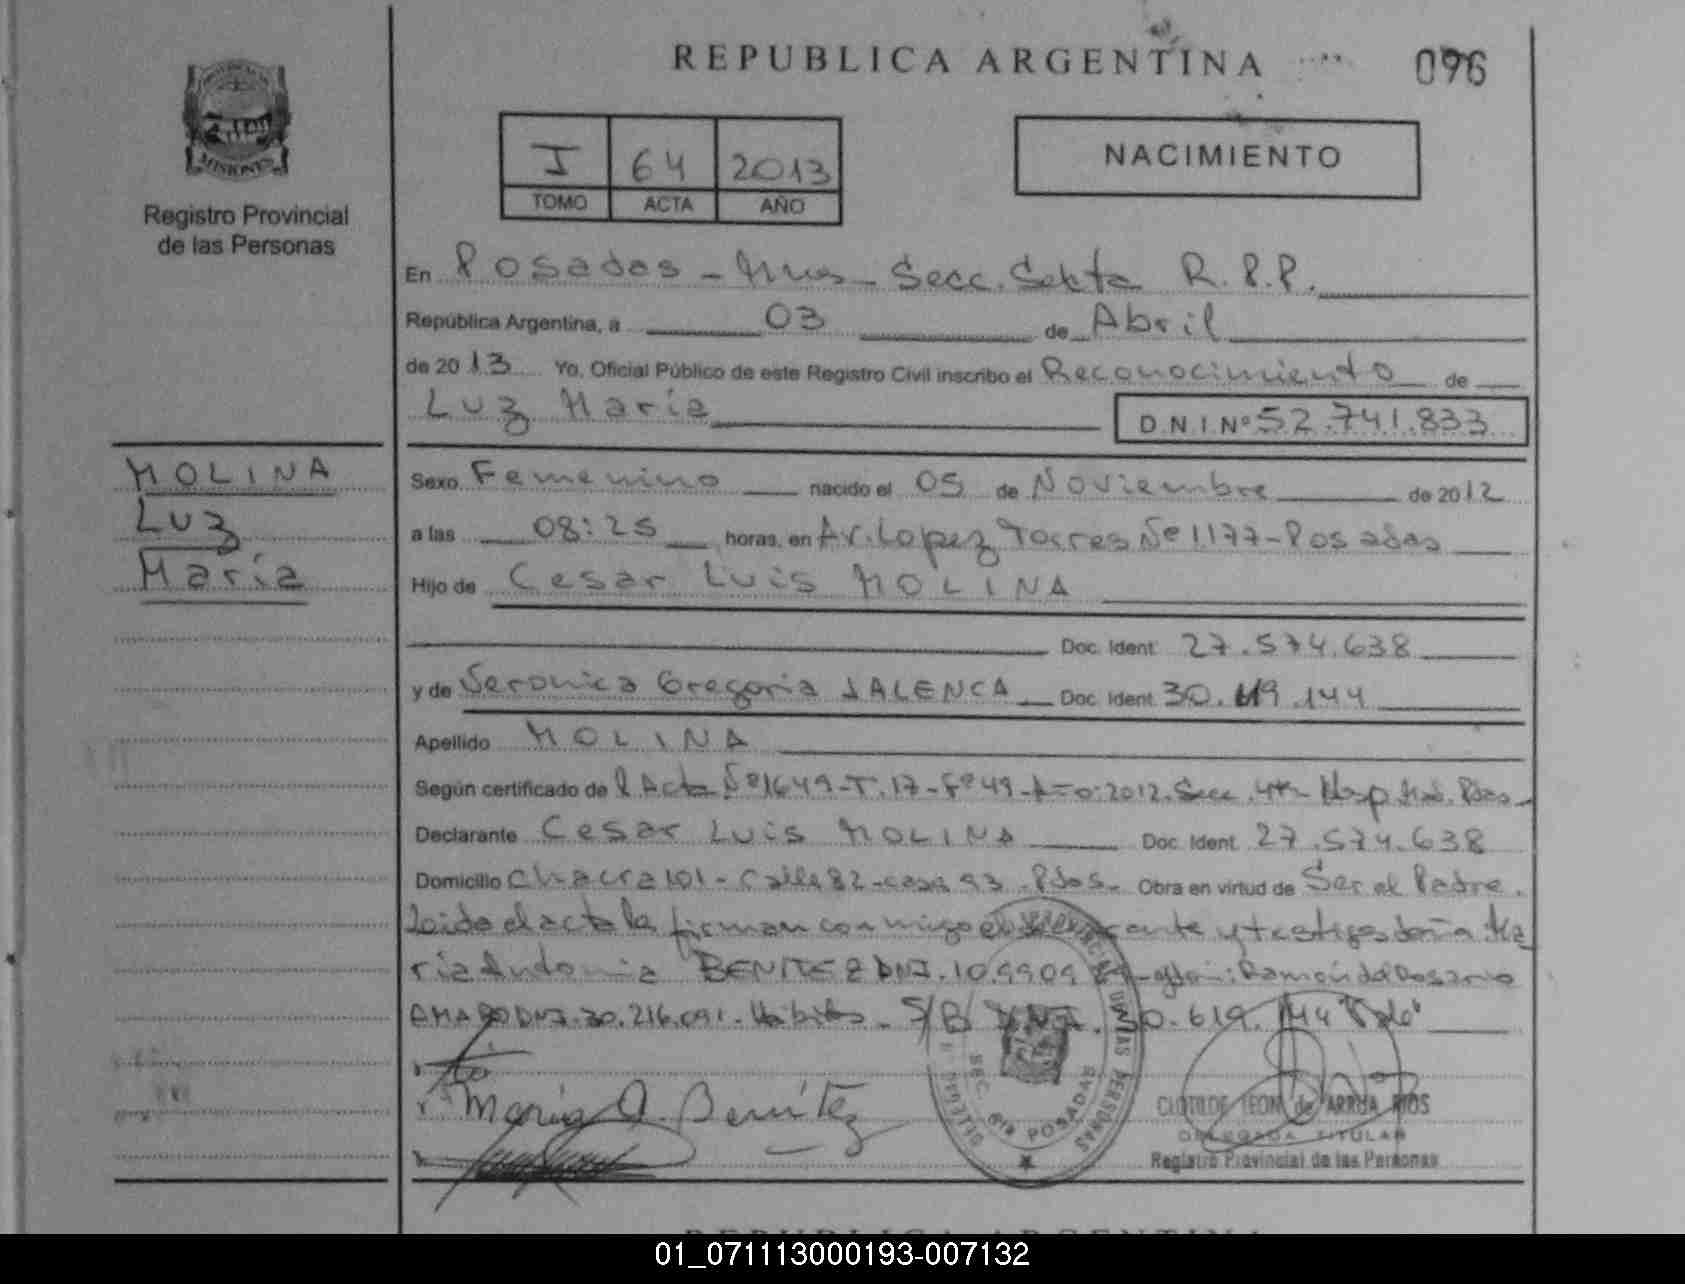 REPUBLICA ARGENTINA
096
MISIONES
Registro Provincial
de las Personas
I 64 2013
TOMO ACTA AÑO
NACIMIENTO
En Posadas - Mnes - Secc. Sexta R.P.P.
República Argentina, a 03 de Abril
de 2013 Yo, Oficial Público de este Registro Civil inscribo el Reconocimiento de
Luz María
D.N.I. Nº 52.741.833
MOLINA
Luz
María
Sexo Femenino nacido el 05 de Noviembre de 2012
a las 08:25 horas, en Av. Lopez Torres Nº 1177 - Posadas
Hijo de Cesar Luis MOLINA
Doc. Ident. 27.574.638
y de Veronica Gregoria Doc. Ident. 30.619.144
Apellido MOLINA
Según certificado de Acta Nº 1649 - T. 17 - Fº 49 - 2012. Secc. 4ta
Declarante Cesar Luis MOLINA Doc. Ident. 27.574.638
Domicilio Chacra 101 - Calle 82 - casa 93 - Pdas. Obra en virtud de Ser el Padre.
Leida el acta la firman conmigo el y testigos doña Ma
ria Antonia BENITEZ DNI. Ramon del Rosario
AMARO DNI. 30.216.091. S/B DNI. 30.619.144 "Vale"
Maria A. Benítez
SEC. 6ta POSADAS
CLOTILDE LEON de ARRUA RIOS
DELEGADA TITULAR
Registro Provincial de las Personas
REPUBLICA ARGENTINA
01_071113000193-007132